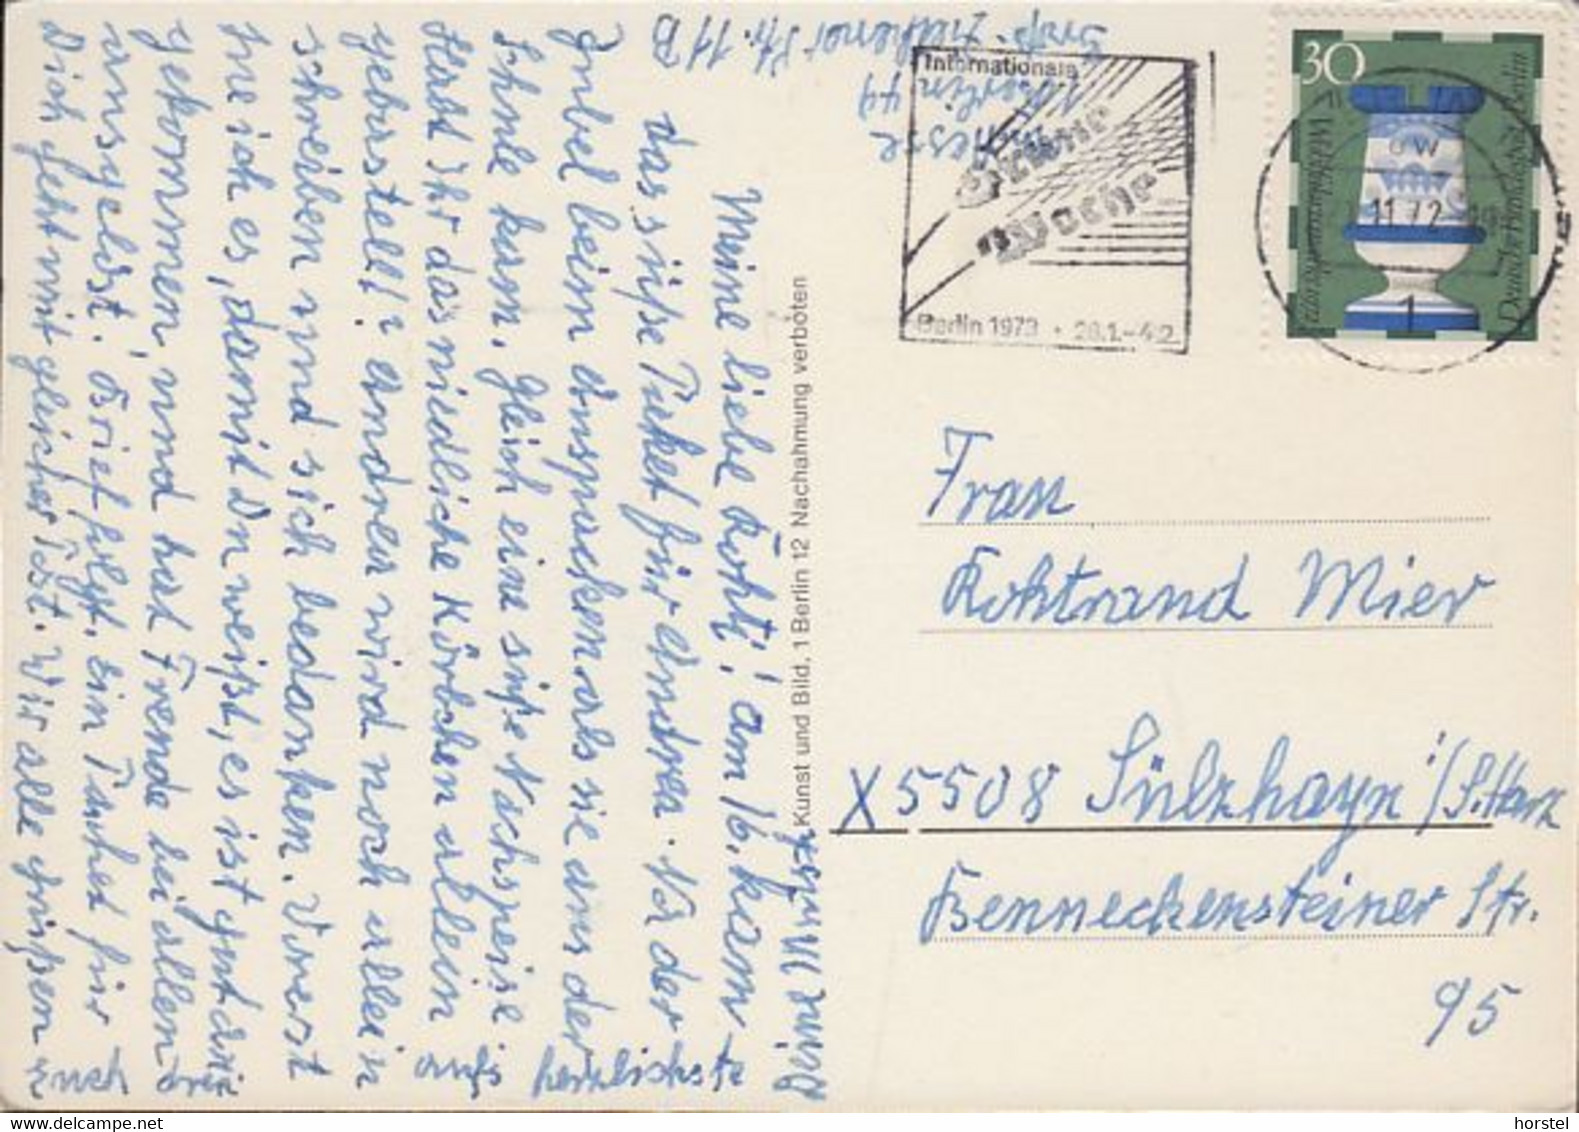 Meine liebe Rohti! am 16. kam
das süße Paket für Andrea. Na der
Jubel beim Auspacken als sie aus der
Schule kam. Gleich eine süße Nachspeise
Habt Ihr das niedliche Körbchen allein
gebastelt? Andrea wird noch allein
schreiben und sich bedanken. Vorerst
tue ich es, damit Du weißt, es ist gut an-
gekommen, und hat Freude bei allen drei
ausgelöst. Brief folgt. Ein Tuches für
Dich geht mit gleicher Post. Wir alle grüßen
Euch
aufs herzlichste
Deine
Berlin 44
Str. 11 B
Kunst und Bild, 1 Berlin 12 Nachahmung verboten
Internationale
Grüne
Woche
Berlin 1973 · 26.1.–4.2.
30
Wohlfahrtsmarke 1972
Deutsche Bundespost Berlin
11.72
1
Frau
Rohtraud Mier
X5508 Sülzhayn i/S.Harz
Benneckensteiner Str.
95